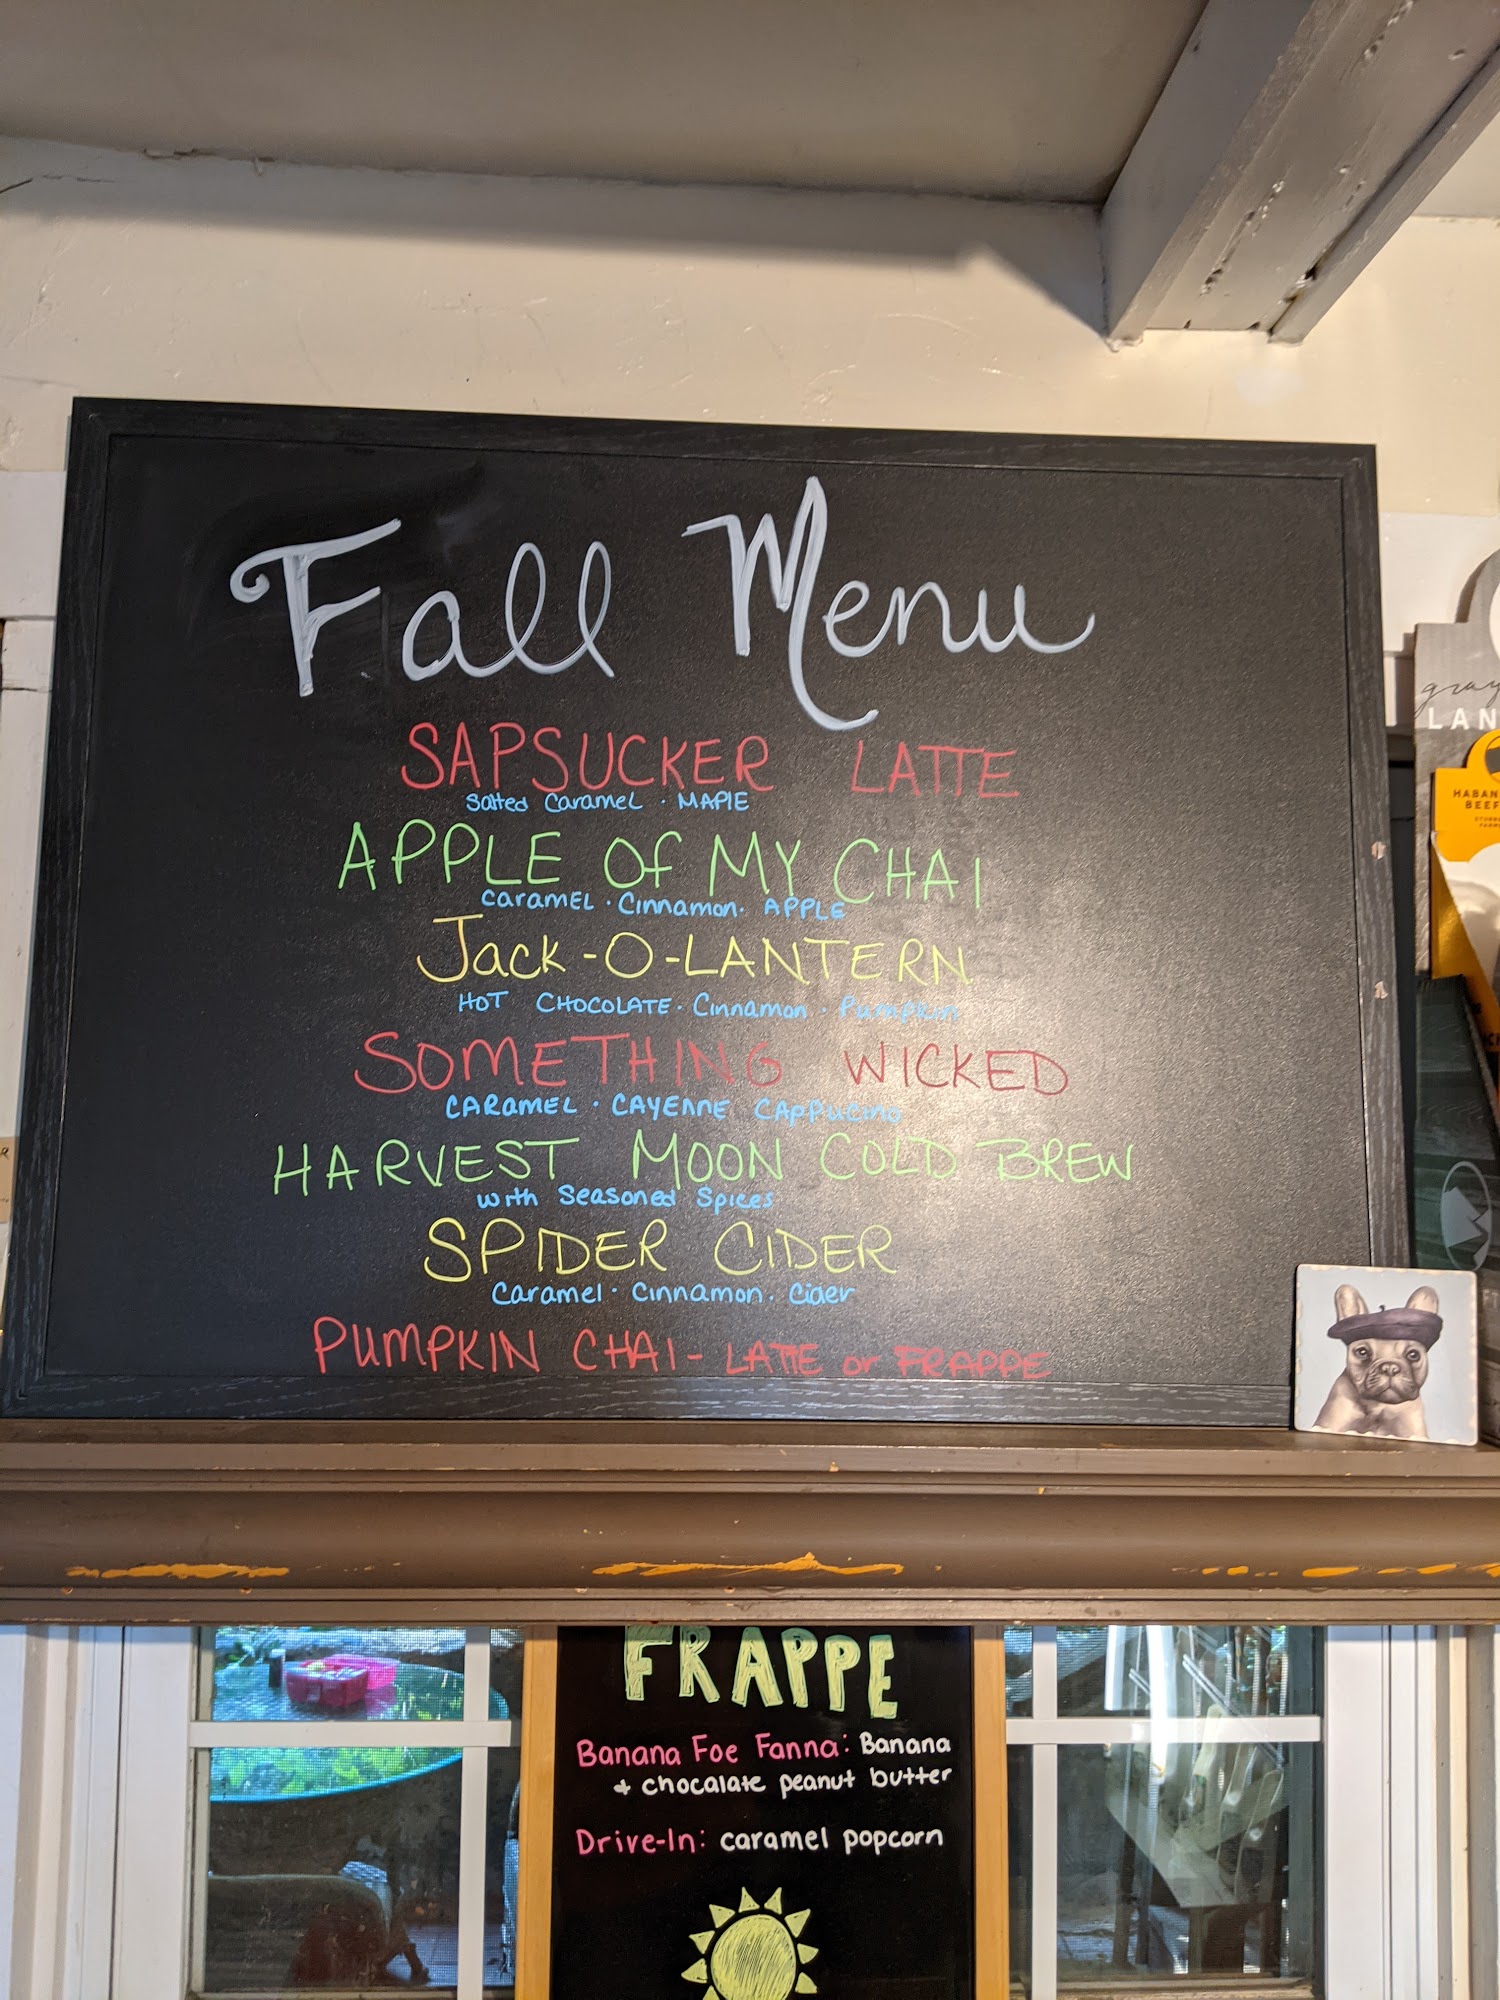 Fall Menu
SAPSUCKER LATTE
Salted Caramel · MAPlE
APPLE Of MY CHAI
CaramEL · Cinnamon · APPLE
Jack-O-LANTERN
HOT CHOCOLATE · Cinnamon · Pumpkin
SOMETHING WICKED
CARamEL · CAYEnnE CAPPUCINO
HARVEST MOON COLD BREW
with Seasoned Spices
SPIDER CIDER
Caramel · Cinnamon · Cider
PUMPKIN CHAI - LATTE or FRAPPE
gray
LAN
HABAN
BEEF
FRAPPE
Banana Foe Fanna: Banana
+ chocalate peanut butter
Drive-In: caramel popcorn